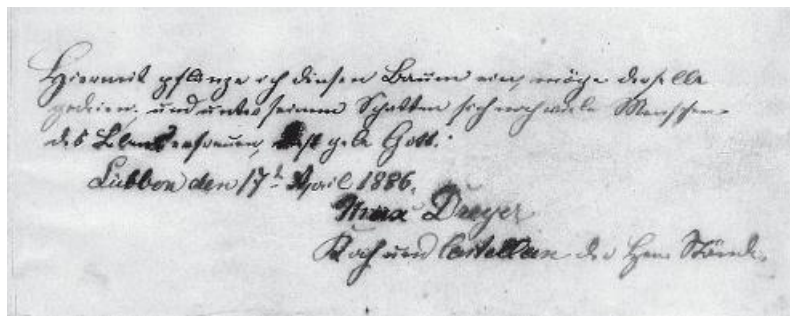 Hiermit pflanze ich diesen Baum ein, möge derselbe
gedeien, und unter seinem Schatten sich noch viele Menschen
des Lebens erfreuen, das gebe Gott.
Lübben den 17t April 1886.
Dreyer
Koch und Castellan der Herrn Stände.